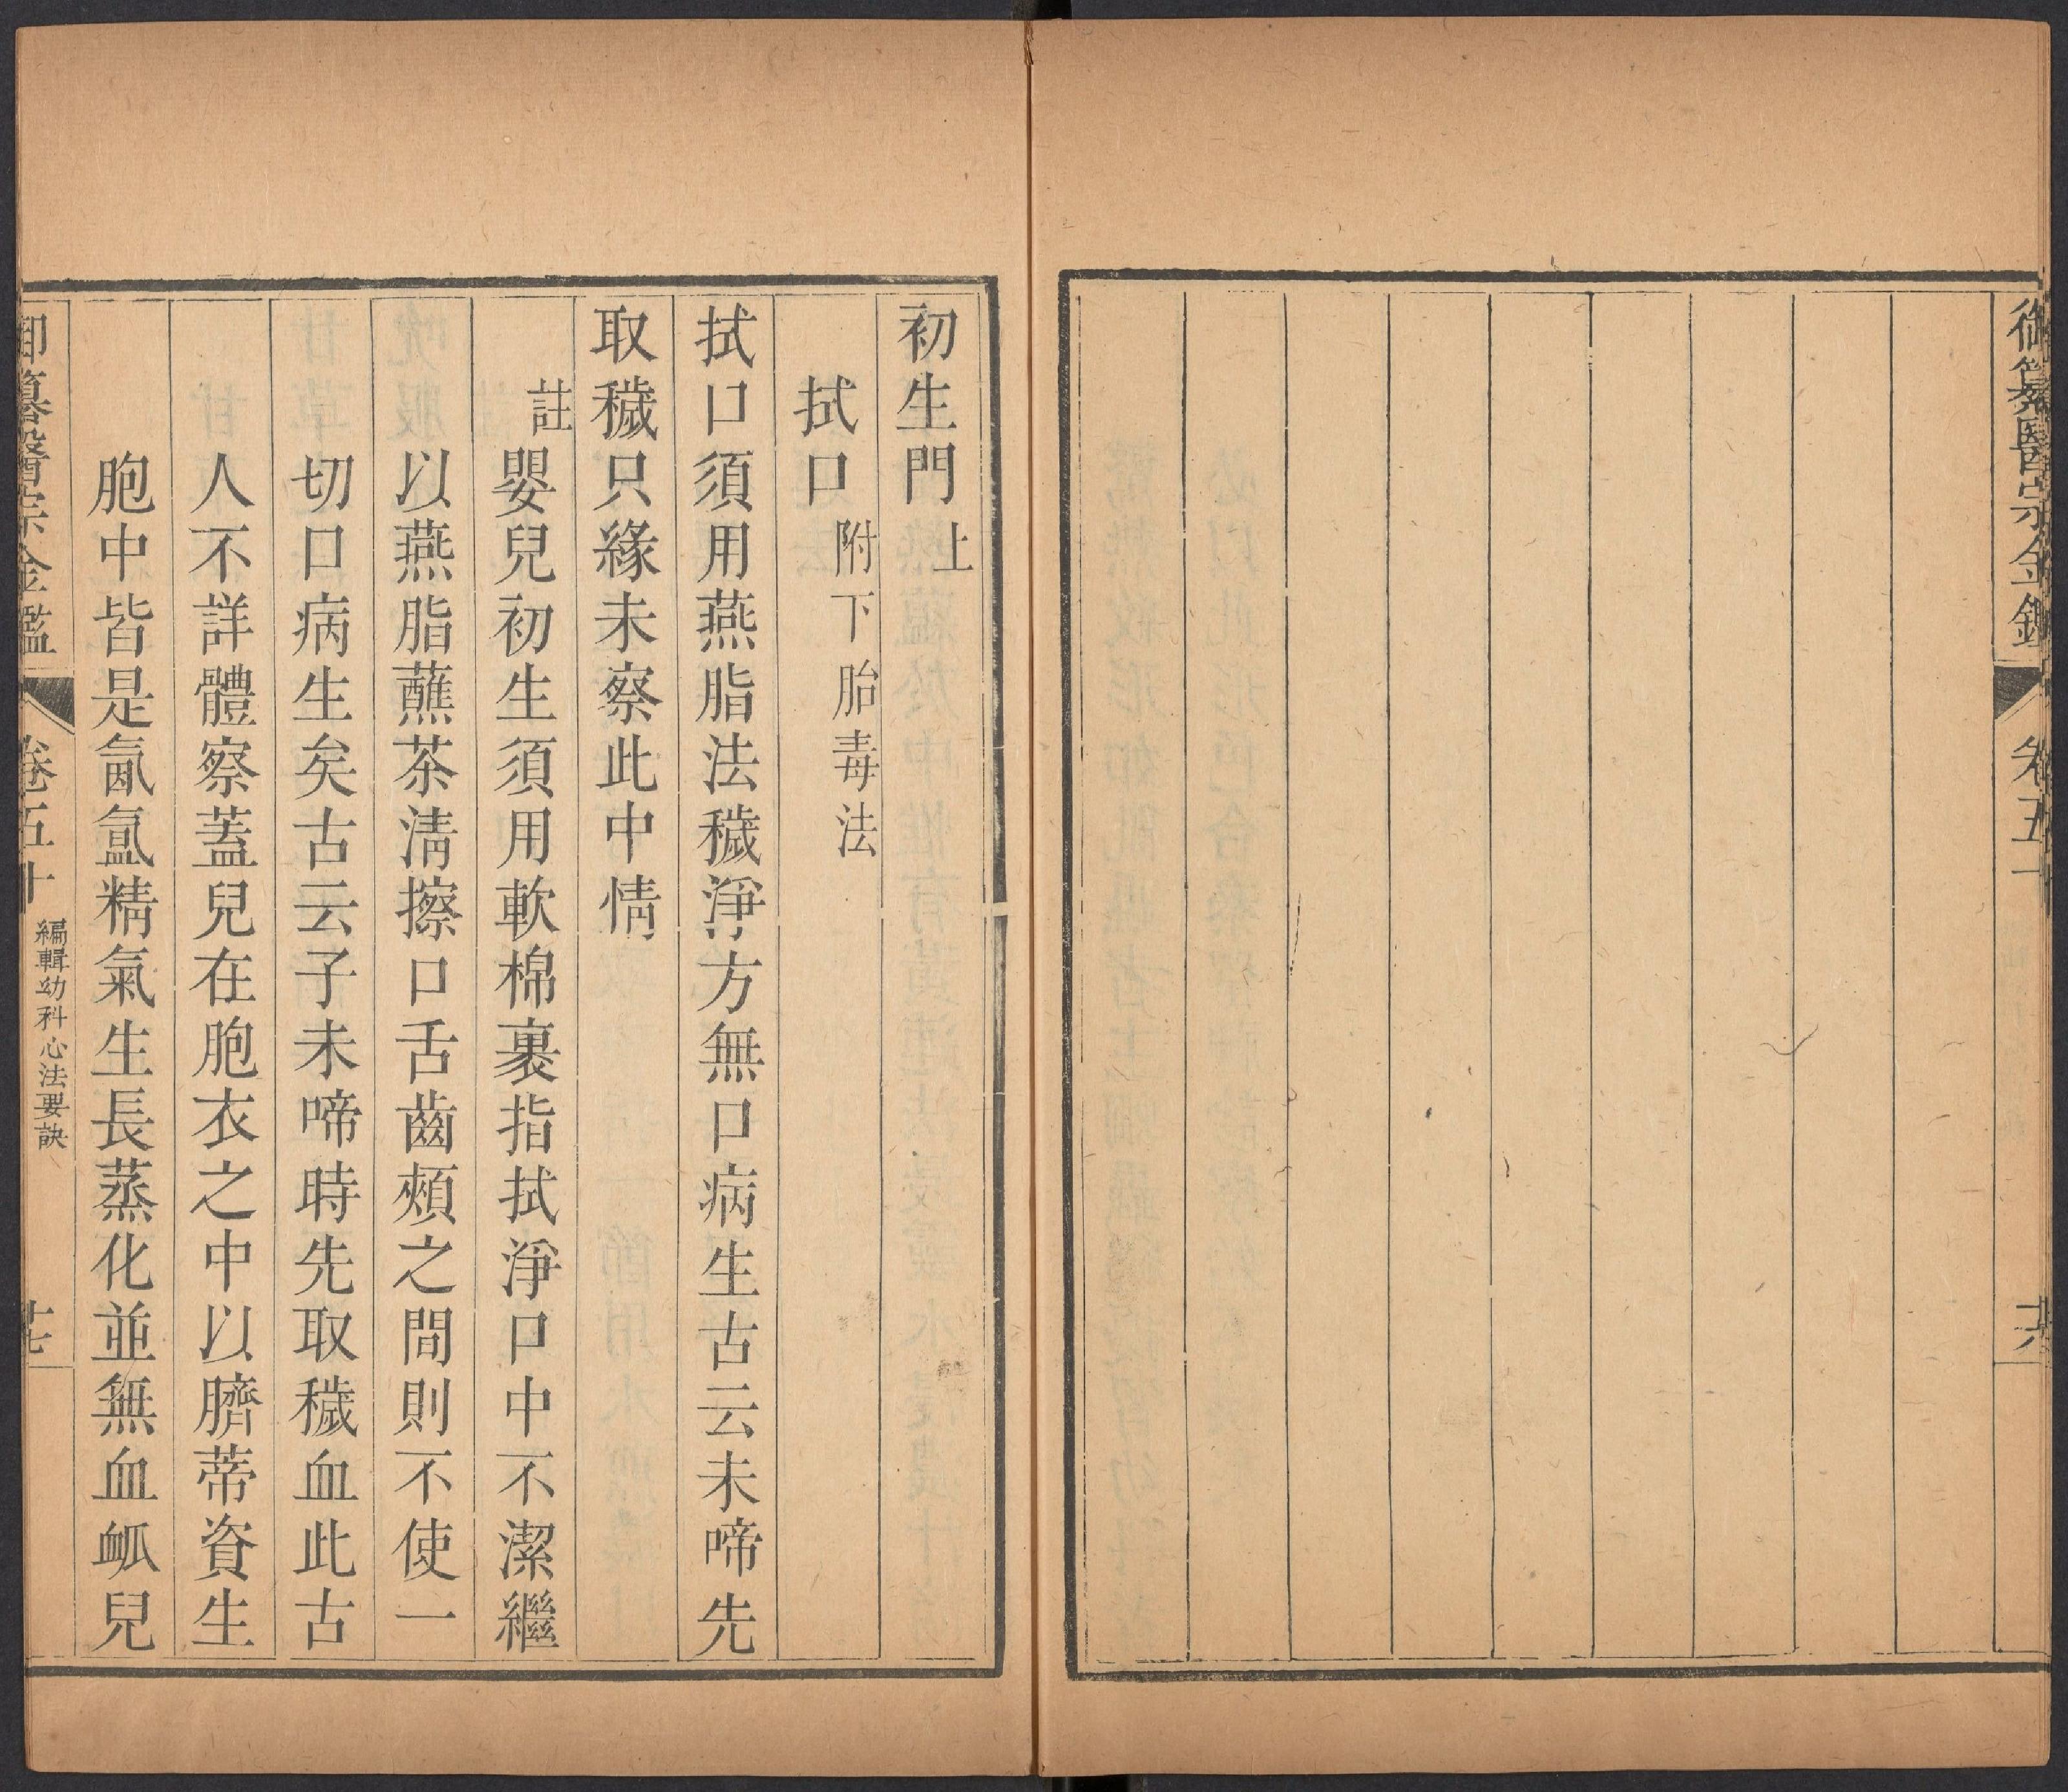 御纂醫宗金鑑 卷五十 六
初生門上
拭口附下胎毒法
拭口須用燕脂法穢淨方無口病生古云未啼先
取穢只緣未察此中情
註嬰兒初生須用軟棉裹指拭淨口中不潔繼
以燕脂蘸茶清擦口舌齒頰之間則不使一
切口病生矣古云子未啼時先取穢血此古
人不詳體察蓋兒在胞衣之中以臍蒂資生
胞中皆是氤氳精氣生長蒸化並無血衇兒
御纂醫宗金鑑 卷五十 編輯幼科心法要訣 七